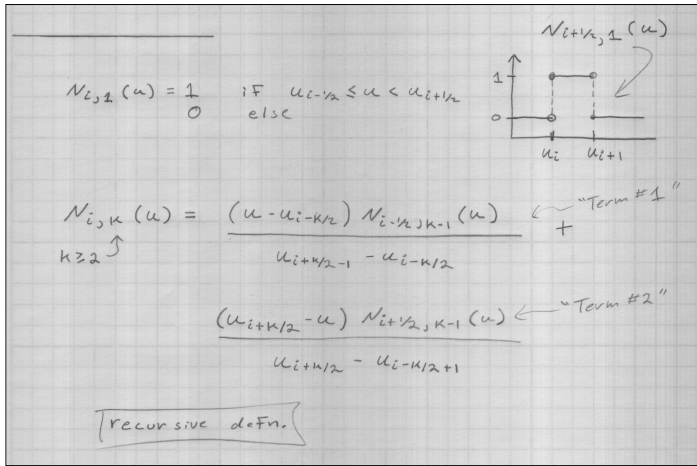 N_{i+1/2, 1}(u)
N_{i,1}(u) = 1 if u_{i-1/2} ≤ u < u_{i+1/2}
0 else
1
0
u_i u_{i+1}
N_{i,K}(u) = (u - u_{i-K/2}) N_{i-1/2, K-1}(u) "Term #1"
K≥2 +
u_{i+K/2-1} - u_{i-K/2}
(u_{i+K/2} - u) N_{i+1/2, K-1}(u) "Term #2"
u_{i+K/2} - u_{i-K/2+1}
recursive defn.